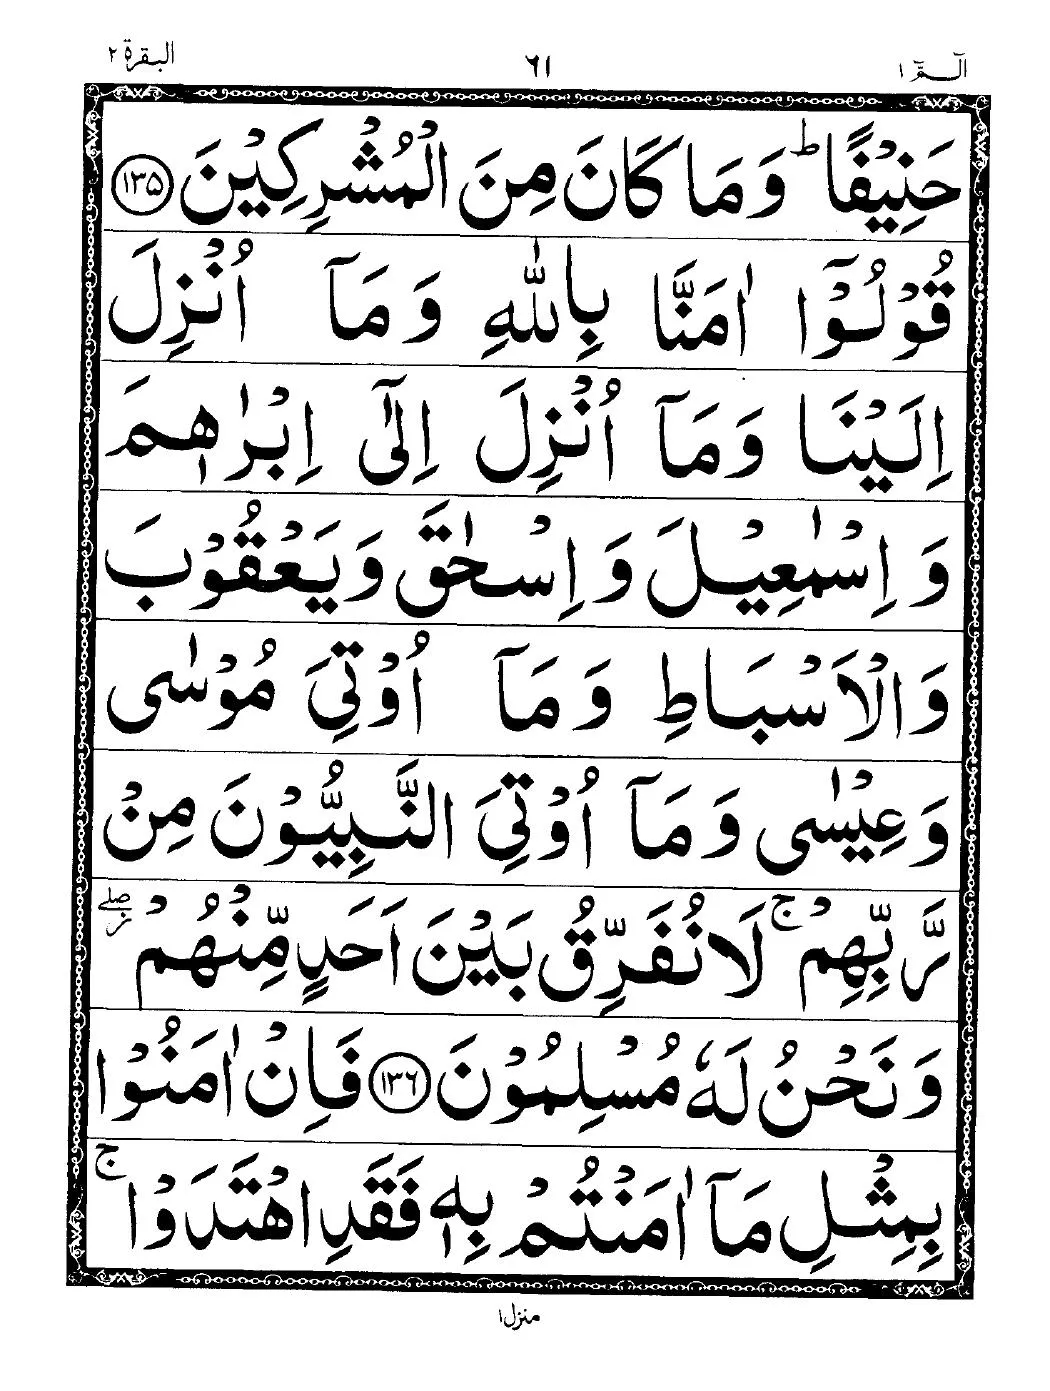 الٓـمّٓ ١
٦١
البقرة ٢
حَنِيْفًا ؕ وَمَا كَانَ مِنَ الْمُشْرِكِيْنَ ﴿۱۳۵﴾
قُوْلُوْۤا اٰمَنَّا بِاللّٰهِ وَمَاۤ اُنْزِلَ
اِلَيْنَا وَمَاۤ اُنْزِلَ اِلٰٓى اِبْرٰهٖمَ
وَاِسْمٰعِيْلَ وَاِسْحٰقَ وَيَعْقُوْبَ
وَالْاَسْبَاطِ وَمَاۤ اُوْتِيَ مُوْسٰى
وَعِيْسٰى وَمَاۤ اُوْتِيَ النَّبِيُّوْنَ مِنْ
رَّبِّهِمْ ۚ لَا نُفَرِّقُ بَيْنَ اَحَدٍ مِّنْهُمْ ۖ ز
وَنَحْنُ لَهٗ مُسْلِمُوْنَ ﴿۱۳۶﴾ فَاِنْ اٰمَنُوْا
بِمِثْلِ مَاۤ اٰمَنْتُمْ بِهٖ فَقَدِ اهْتَدَوْا ۚ
منزل ١